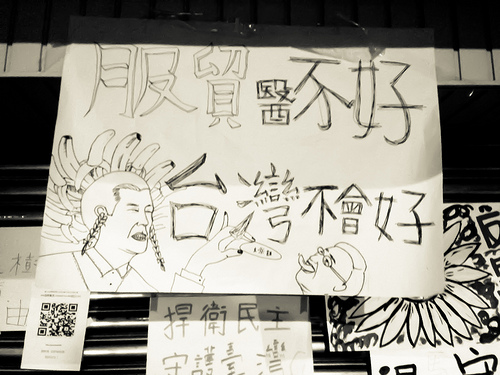 服貿醫不好
台灣不會好
捍衛民主
守護臺灣